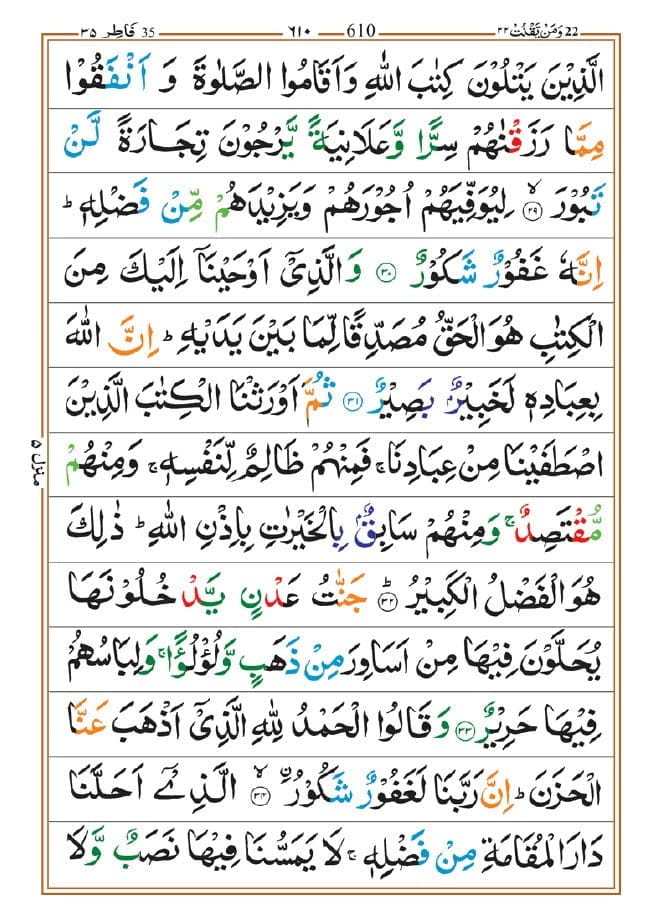 35 فَاطِر ۳۵ 610 ٦١٠ 22 وَمَنْ يَّقْنُتْ ٢٢
الَّذِيْنَ يَتْلُوْنَ كِتٰبَ اللّٰهِ وَاَقَامُوا الصَّلٰوةَ وَ اَنْفَقُوْا
مِمَّا رَزَقْنٰهُمْ سِرًّا وَّعَلَانِيَةً يَّرْجُوْنَ تِجَارَةً لَّنْ
تَبُوْرَ ۙ‏﴿٢٩﴾ لِيُوَفِّيَهُمْ اُجُوْرَهُمْ وَيَزِيْدَهُمْ مِّنْ فَضْلِهٖ ؕ
اِنَّهٗ غَفُوْرٌ شَكُوْرٌ ﴿٣٠﴾ وَالَّذِىْۤ اَوْحَيْنَاۤ اِلَيْكَ مِنَ
الْكِتٰبِ هُوَ الْحَقُّ مُصَدِّقًا لِّمَا بَيْنَ يَدَيْهِ ؕ اِنَّ اللّٰهَ
بِعِبَادِهٖ لَخَبِيْرٌۢ بَصِيْرٌ ﴿٣١﴾ ثُمَّ اَوْرَثْنَا الْكِتٰبَ الَّذِيْنَ
اصْطَفَيْنَا مِنْ عِبَادِنَا ۚ فَمِنْهُمْ ظَالِمٌ لِّنَفْسِهٖ ۚ وَمِنْهُمْ
مُّقْتَصِدٌ ۚ وَمِنْهُمْ سَابِقٌۢ بِالْخَيْرٰتِ بِاِذْنِ اللّٰهِ ؕ ذٰلِكَ
هُوَ الْفَضْلُ الْكَبِيْرُ ؕ﴿٣٢﴾ جَنّٰتُ عَدْنٍ يَّدْخُلُوْنَهَا
يُحَلَّوْنَ فِيْهَا مِنْ اَسَاوِرَ مِنْ ذَهَبٍ وَّلُؤْلُؤًا ۚ وَلِبَاسُهُمْ
فِيْهَا حَرِيْرٌ ﴿٣٣﴾ وَقَالُوا الْحَمْدُ لِلّٰهِ الَّذِىْۤ اَذْهَبَ عَنَّا
الْحَزَنَ ؕ اِنَّ رَبَّنَا لَغَفُوْرٌ شَكُوْرُ ۙ﴿٣٤﴾ الَّذِىْۤ اَحَلَّنَا
دَارَ الْمُقَامَةِ مِنْ فَضْلِهٖ ۚ لَا يَمَسُّنَا فِيْهَا نَصَبٌ وَّلَا
منزل ۵